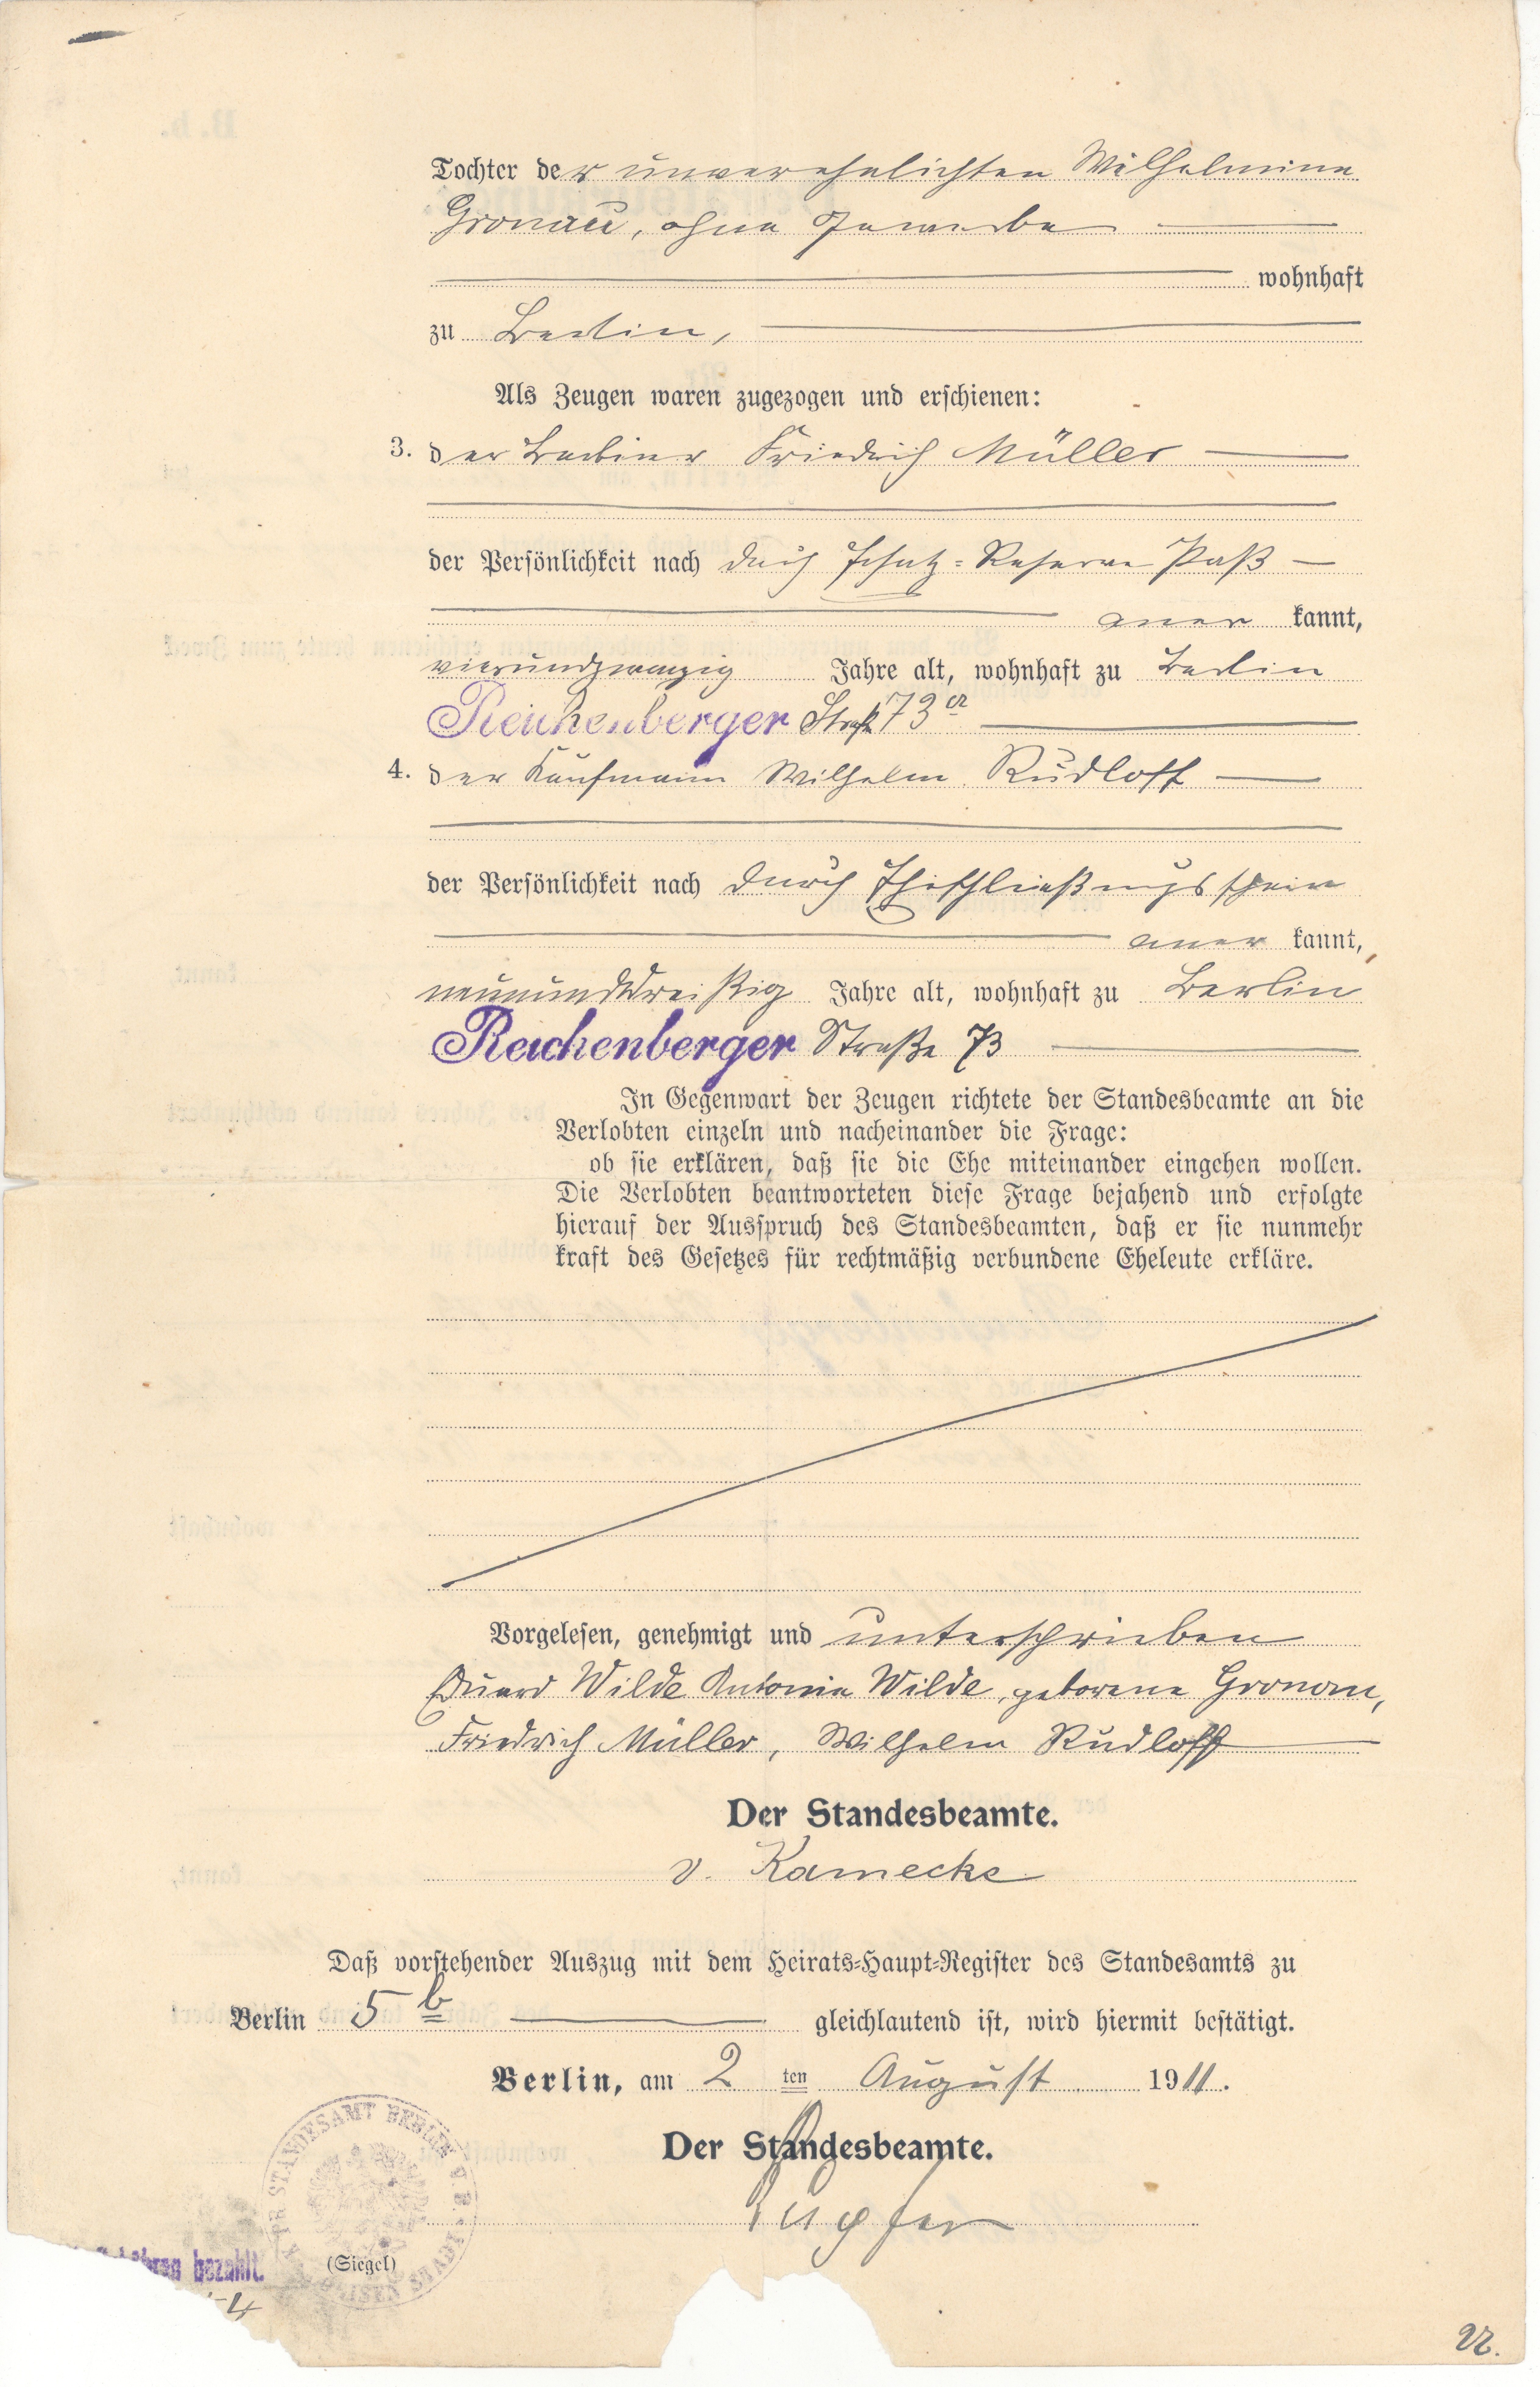 Tochter der unverehelichten Wilhelmine
Gronau, ohne Gewerbe
wohnhaft
zu Berlin,
Als Zeugen waren zugezogen und erschienen:
3. der Barbier Friedrich Müller
der Persönlichkeit nach durch Ersatz-Reserve Paß
aner kannt,
vierundzwanzig Jahre alt, wohnhaft zu Berlin
Reichenberger Straße 73 a
4. der Kaufmann Wilhelm Rudloff
der Persönlichkeit nach durch Eheschließungsschein
aner kannt,
neununddreißig Jahre alt, wohnhaft zu Berlin
Reichenberger Straße 73
In Gegenwart der Zeugen richtete der Standesbeamte an die
Verlobten einzeln und nacheinander die Frage:
ob sie erklären, daß sie die Ehe miteinander eingehen wollen.
Die Verlobten beantworteten diese Frage bejahend und erfolgte
hierauf der Ausspruch des Standesbeamten, daß er sie nunmehr
kraft des Gesetzes für rechtmäßig verbundene Eheleute erkläre.
Vorgelesen, genehmigt und unterschrieben
Eduard Wilde Antonie Wilde, geborene Gronau,
Friedrich Müller, Wilhelm Rudloff
Der Standesbeamte.
v. Kamecke
Daß vorstehender Auszug mit dem Heirats-Haupt-Register des Standesamts zu
Berlin 5 b gleichlautend ist, wird hiermit bestätigt.
Berlin, am 2 ten August 1911.
Der Standesbeamte.
STANDESAMT BERLIN
(Siegel)
bezahlt.
22.